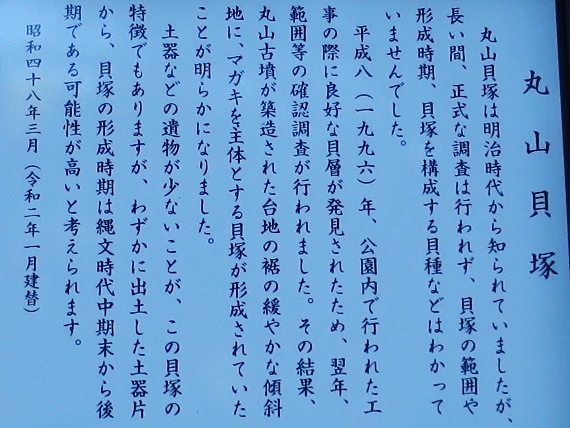 丸山貝塚
丸山貝塚は明治時代から知られていましたが、
長い間、正式な調査は行われず、貝塚の範囲や
形成時期、貝塚を構成する貝種などはわかって
いませんでした。
平成八(一九九六)年、公園内で行われた工
事の際に良好な貝層が発見されたため、翌年、
範囲等の確認調査が行われました。その結果、
丸山古墳が築造された台地の裾の緩やかな傾斜
地に、マガキを主体とする貝塚が形成されていた
ことが明らかになりました。
土器などの遺物が少ないことが、この貝塚の
特徴でもありますが、わずかに出土した土器片
から、貝塚の形成時期は縄文時代中期末から後
期である可能性が高いと考えられます。
昭和四十八年三月(令和二年一月建替)